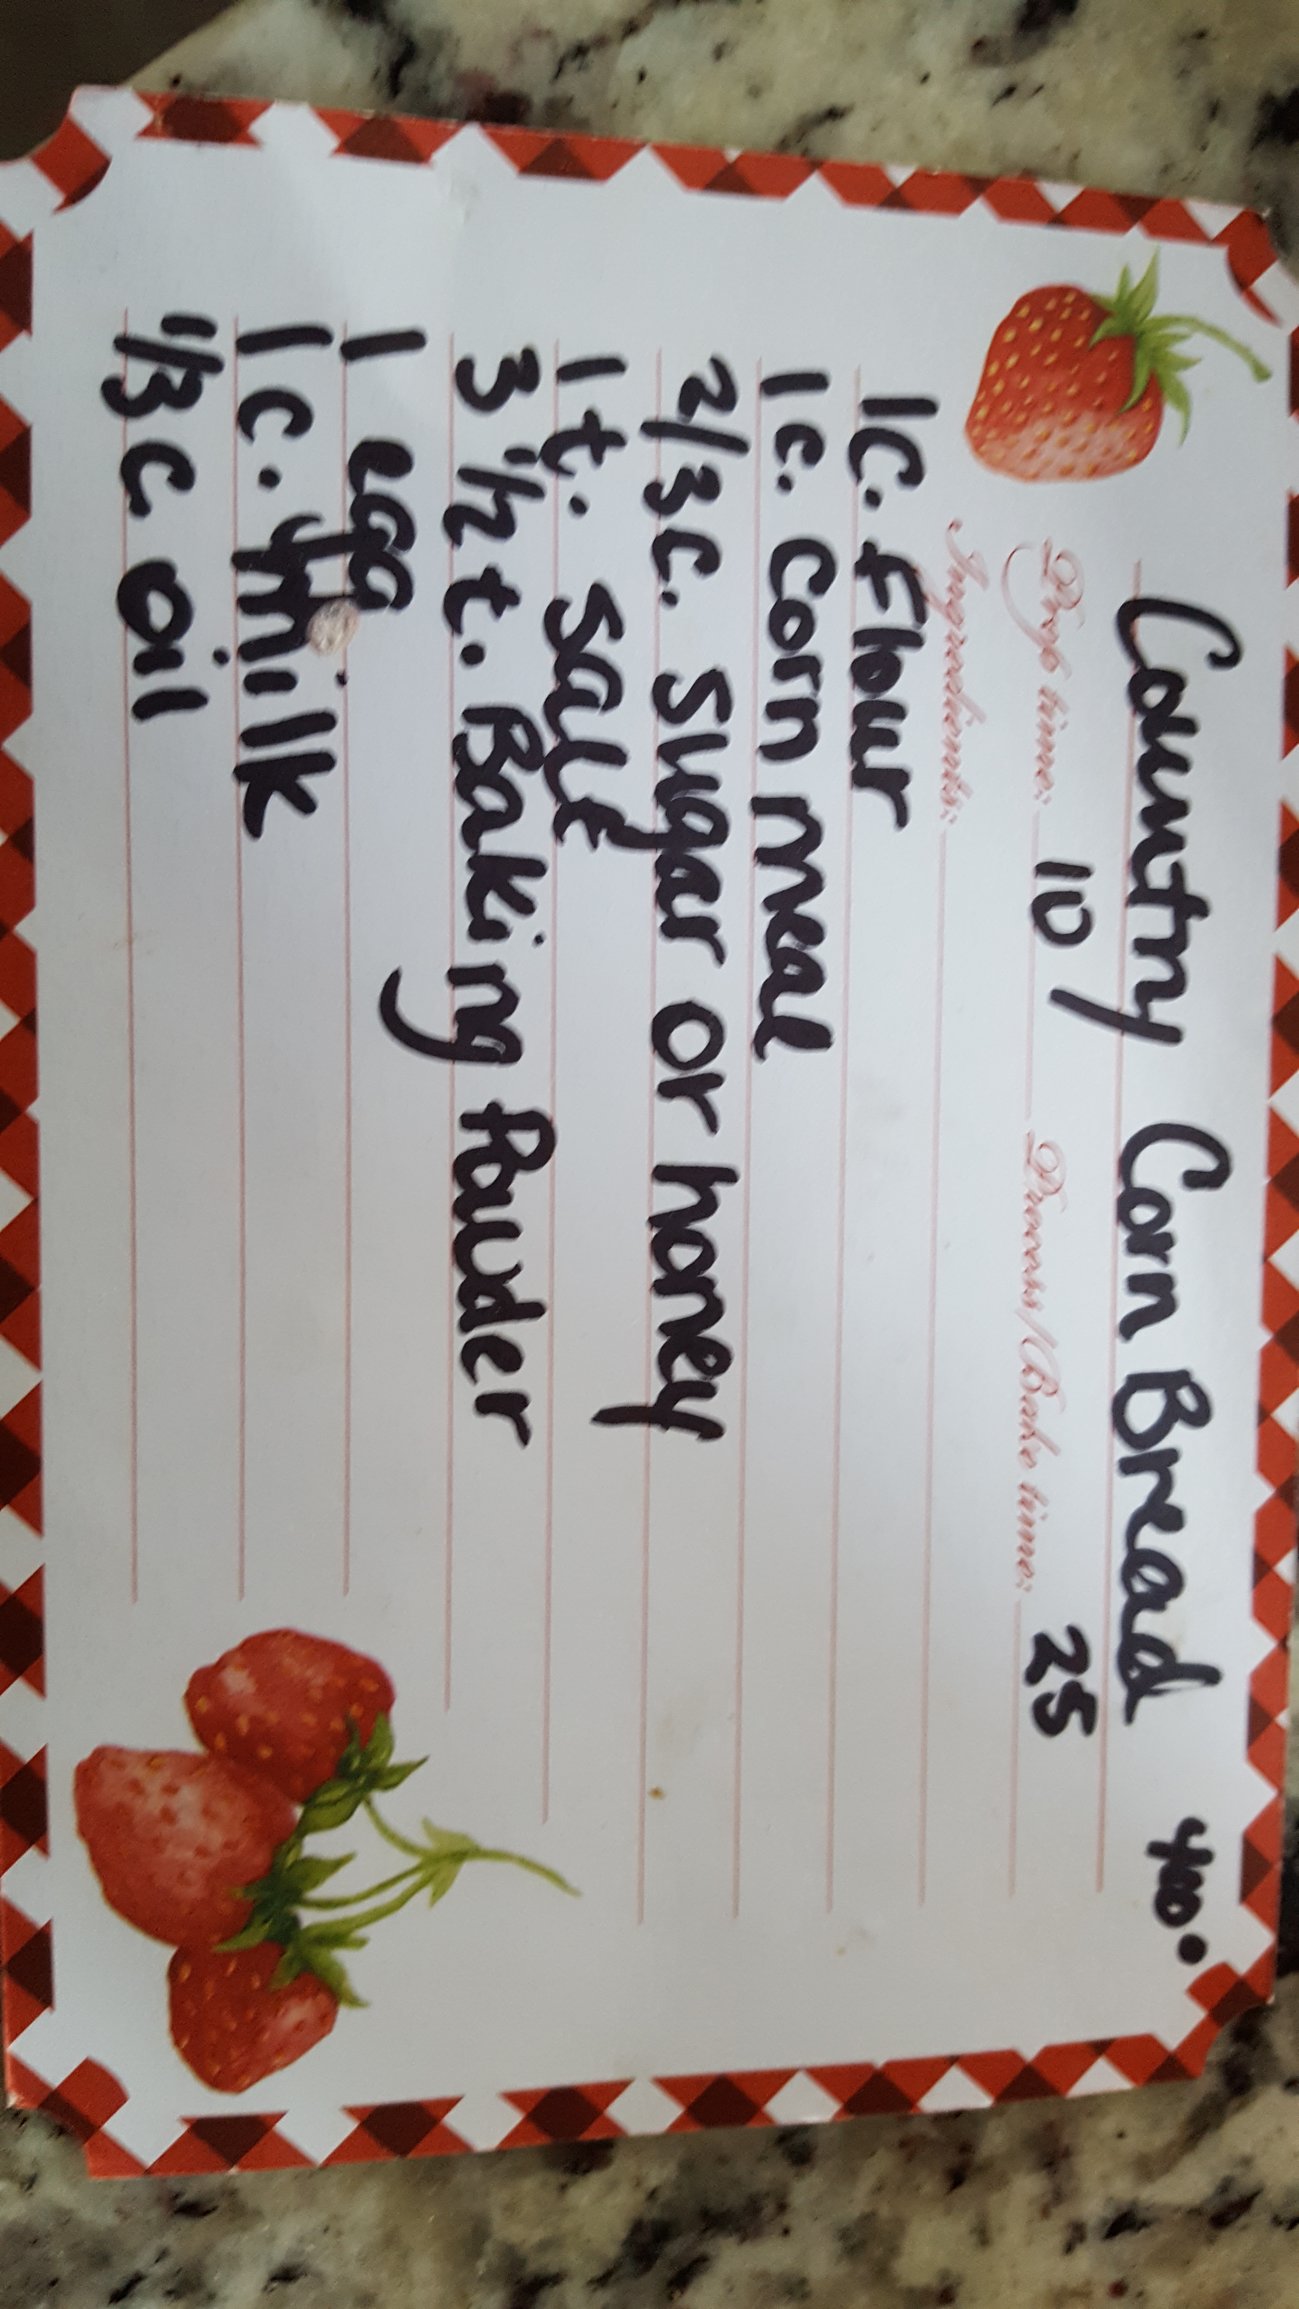 Country Corn Bread 400°
Prep time: 10 Process/Bake time: 25
Ingredients:
1 C. Flour
1 c. Corn meal
2/3 c. Sugar or honey
1 t. Salt
3 1/2 t. Baking Powder
1 egg
1 c. Milk
1/3 c oil